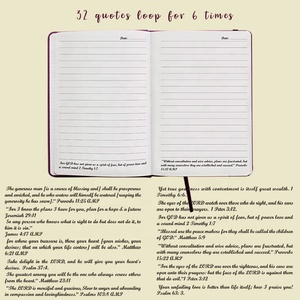 32 quotes loop for 6 times
Date:
Date:
For GOD has not given us a spirit of fear, but of power love
and a sound mind 2 Timothy 1:7
"Without consultation and wise advice, plans are frustrated, but
with many counselors they are established and succeed." Proverbs
15:22 AMP
The generous man [is a source of blessing and] shall be prosperous
and enriched, and he who waters will himself be watered [reaping the
generosity he has sown]." Proverbs 11:25 AMP
"For I know the plans I have for you, plan for a hope & a future
Jeremiah 29:11
So any person who knows what is right to do but does not do it, to
him it is sin."
James 4:17 AMP
for where your treasure is, there your heart [your wishes, your
desires; that on which your life centers] will be also." Matthew
6:21 AMP
Take delight in the LORD, and he will give you your heart's
desires. Psalms 37:4.
The greatest among you will be the one who always serves others
from the heart." Matthew 23:11
"The LORD is merciful and gracious, Slow to anger and abounding
in compassion and lovingkindness." Psalms 103:8 AMP
Yet true godliness with contentment is itself great wealth. 1
Timothy 6:6.
The eyes of the LORD watch over those who do right, and his ears
are open to their prayers. 1 Peter 3:12.
For GOD has not given us a spirit of fear, but of power love and
a sound mind 2 Timothy 1:7
"Blessed are the peace makers for they shall be called the children
of GOD." Matthew 5:9
"Without consultation and wise advice, plans are frustrated, but
with many counselors they are established and succeed." Proverbs
15:22 AMP
"For the eyes of the LORD are over the righteous, and his ears are
open unto their prayers: but the face of the LORD is against them
that do evil." 1 Peter 3:12
Your unfailing love is better than life itself; how I praise you!
Psalm 63: 3.